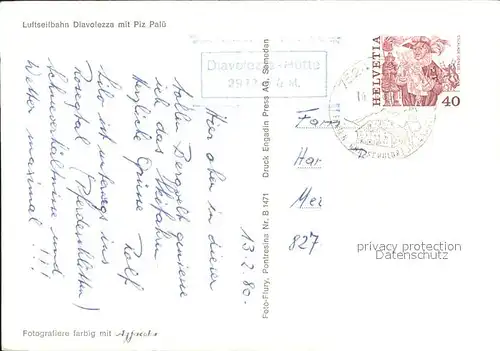 Luftseilbahn Diavolezza mit Piz Palü
Diavolezza-Hütte
2973
HELVETIA
40
13.2.80.
Hier oben in dieser
tollen Bergwelt geniesse
ich das Skifahren
Herzliche Grüsse Rolf
ist unterwegs ins
Rosegtal
Schneeverhältnisse und
Wetter maximal !!!
Fam
Har
Mez
827
privacy protection
www.
Foto-Flury, Pontresina Nr. B 1471 Druck Engadin Press AG, Samedan
Fotografiere farbig mit